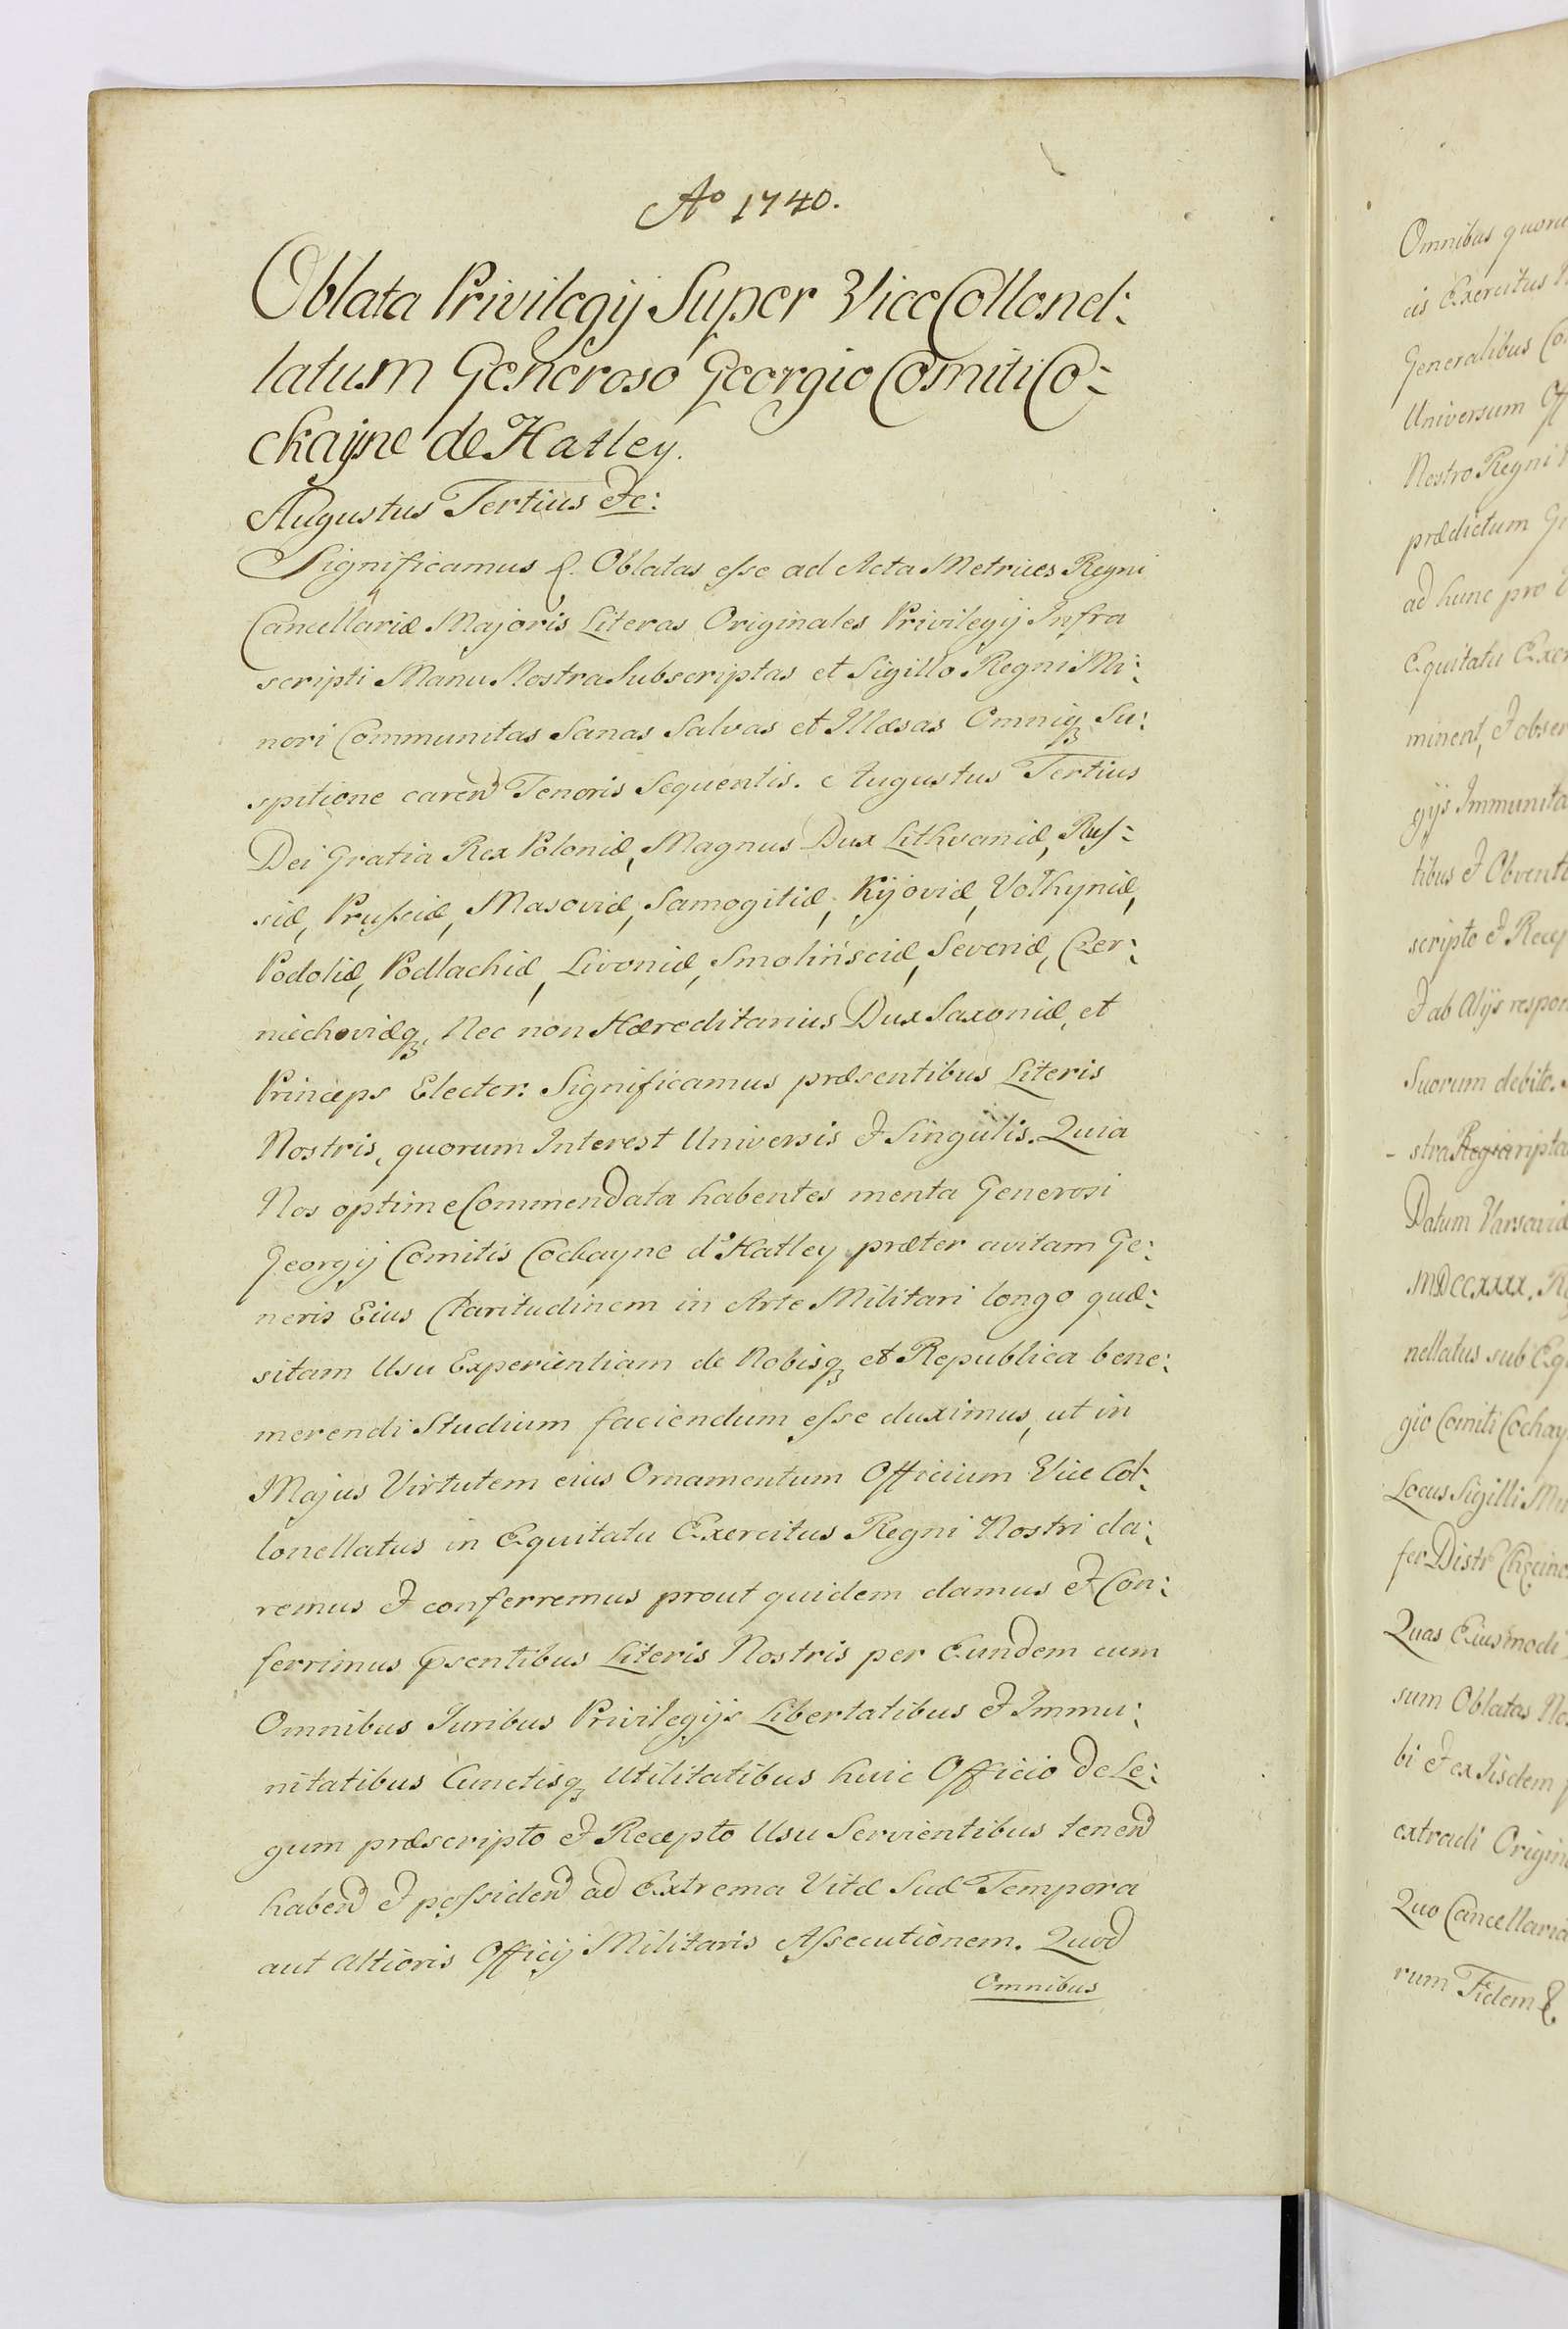 Ao 1740.
Oblata Privilegij Super ViceCollonel:
latum Generoso Georgio Comiti Co:
ckaÿne de Hatley.
Augustus Tertius etc:
Significamus &. Oblatas esse ad Acta Metrices Regni
Cancellariæ Majoris Literas Originales Privilegij Infra
scripti Manu Nostra Subscriptas et Sigillo Regni Mi:
nori Communitas Sanas Salvas et Illæsas Omniq3 Su:
spitione caren̄d Tenoris Sequentis. Augustus Tertius
Dei Gratia Rex Poloniæ, Magnus Dux Lithvaniæ, Rus:
siæ, Prussiæ, Masoviæ, Samogitiæ, Kijoviæ, Volhyniæ,
Podoliæ, Podlachiæ, Livoniæ, Smolińsciæ, Severiæ, Czer:
niechoviæq3, Nec non Hæreditarius Dux Saxoniæ, et
Princeps Elector: Significamus præsentibus Literis
Nostris, quorum Interest Universis et Singulis. Quia
Nos optime Commendata habentes merita Generosi
Georgij Comitis Cockayne d'Hatley præter avitam Ge:
neris Eius Claritudinem in Arte Militari longo quæ:
sitam Usu Experientiam de Nobisq3 et Republica bene:
merendi Studium faciendum esse duximus, ut in
Majus Virtutem eius Ornamentum Officium Vice Col:
lonellatus in Equitatu Exercitus Regni Nostri da:
remus et conferremus prout quidem damus et Con:
ferrimus psentibus Literis Nostris per Eundem cum
Omnibus Juribus Privilegijs Libertatibus et Immu:
nitatibus Cunctisq3 Utilitatibus huic Officio de Le:
gum præscripto et Recepto Usu Servientibus tenen̄d
haben̄d et possiden̄d ad Extrema Vitæ Suæ Tempora
aut altioris Officij Militaris Assecutionem. Quod
Omnibus
Omnibus
Exercitus
Generalibus
Universum
Nostro Regni
prædictum
ad hunc pro
Equitatu
minent, et
gijs
tibus et
scripto et
et ab Alijs
Suorum debito.
stra
Datum Varsaviæ
MDCCXXXX.
nellatus sub
gio Comiti
Locus Sigilli
fer Distr
Quas Eiusmodi
sum Oblatas
bi et ex Iisdem
extradi
Quo Cancellaria
rum Fidem &.